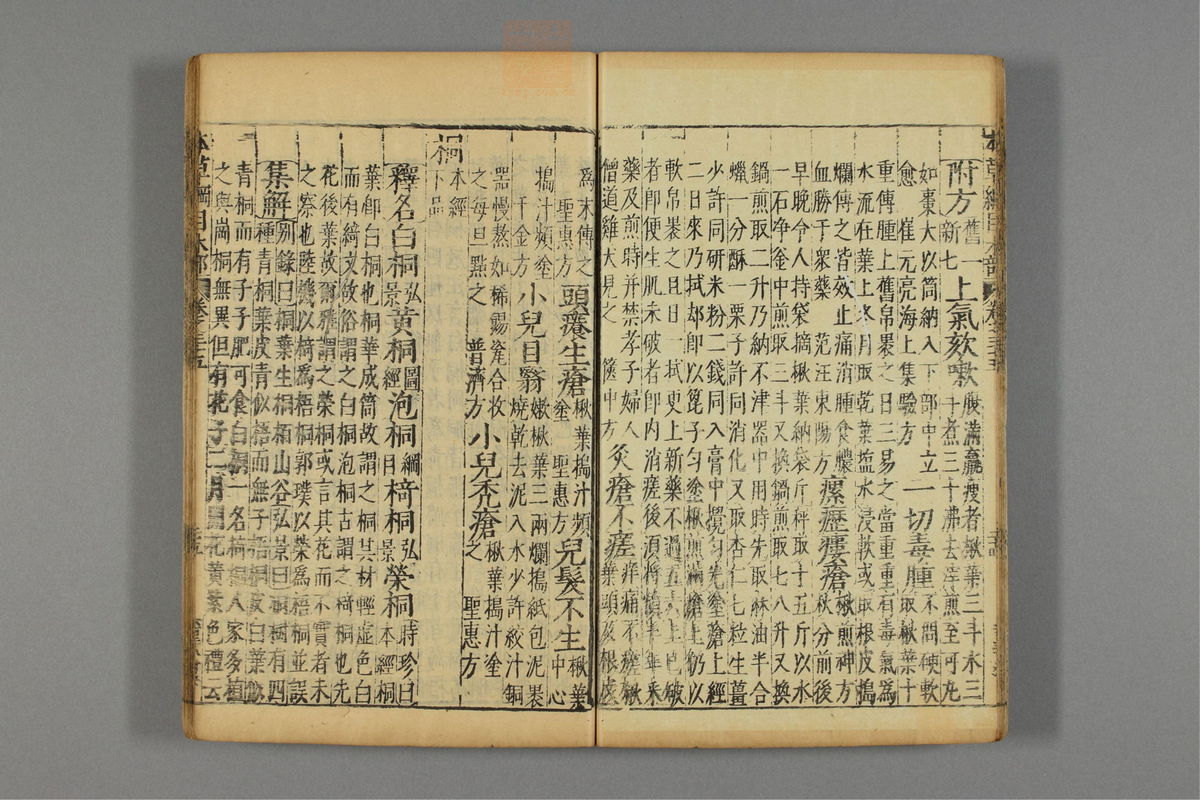 本草綱目木部 卷三十五
附方舊一新七 上氣欬嗽腹滿羸瘦者楸葉三斗水三
斗煮三十沸去滓煎至可丸
如棗大以筒納入下部中立
愈 崔元亮海上集驗方 一切毒腫不問硬軟取楸葉十
重傅腫上舊帛裹之日三易之當重重有毒氣爲
水流在葉上冬月取乾葉鹽水浸軟或取根皮搗
爛傅之皆效止痛消腫食膿
血勝于衆藥 范汪東陽方 瘰癧瘻瘡楸煎神方秋分前後
早晚令人持袋摘楸葉納袋 斤秤取十五斤以水
一石净釜中煎取三斗又換鍋煎取七八升又換
鍋煎取二升乃納不津器中用時先取麻油半合
蠟一分酥一栗子許同消化又取杏仁七粒生薑
少許同研米粉二錢同入膏中攪勻先塗瘡上經
二日來乃拭却卽以箆子勻塗楸煎滿瘡上仍以
軟帛裹之旦日一拭更上新藥不過五六上已破
者卽便生肌未破者卽内消瘥後須將慎半年采
藥及煎時并禁孝子婦人
僧道雞犬見之 篋中方 灸瘡不瘥痒痛不瘥楸葉頭及根皮
爲末傅之
聖惠方 頭癢生瘡楸葉搗汁頻塗 聖惠方 兒髮不生楸葉中心
搗汁頻塗
千金方 小兒目翳嫩楸葉三兩爛搗紙包泥裹
燒乾去泥入水少許絞汁銅
器慢熬如稀餳瓷合收
之每旦點之 普濟方 小兒秃瘡楸葉搗汁塗之 聖惠方
桐本經下品
釋名白桐弘景黄桐圖經泡桐綱目椅桐弘景榮桐時珍曰本經桐
葉卽白桐也桐華成筒故謂之桐其材輕虛色白
而有綺文故俗謂之白桐泡桐古謂之椅桐也先
花後葉故爾雅謂之榮桐或言其花而不實者未
之察也陸璣以椅爲梧桐郭璞以榮爲梧桐並誤
集解别錄曰桐葉生桐栢山谷弘景曰桐樹有四
種青桐葉皮青似梧而無子梧桐皮白葉似
青桐而有子子肥可食白桐一名椅桐人家多植
之與崗桐無異但有花子二月開花黄紫色禮云
本草綱目木部 卷三十五